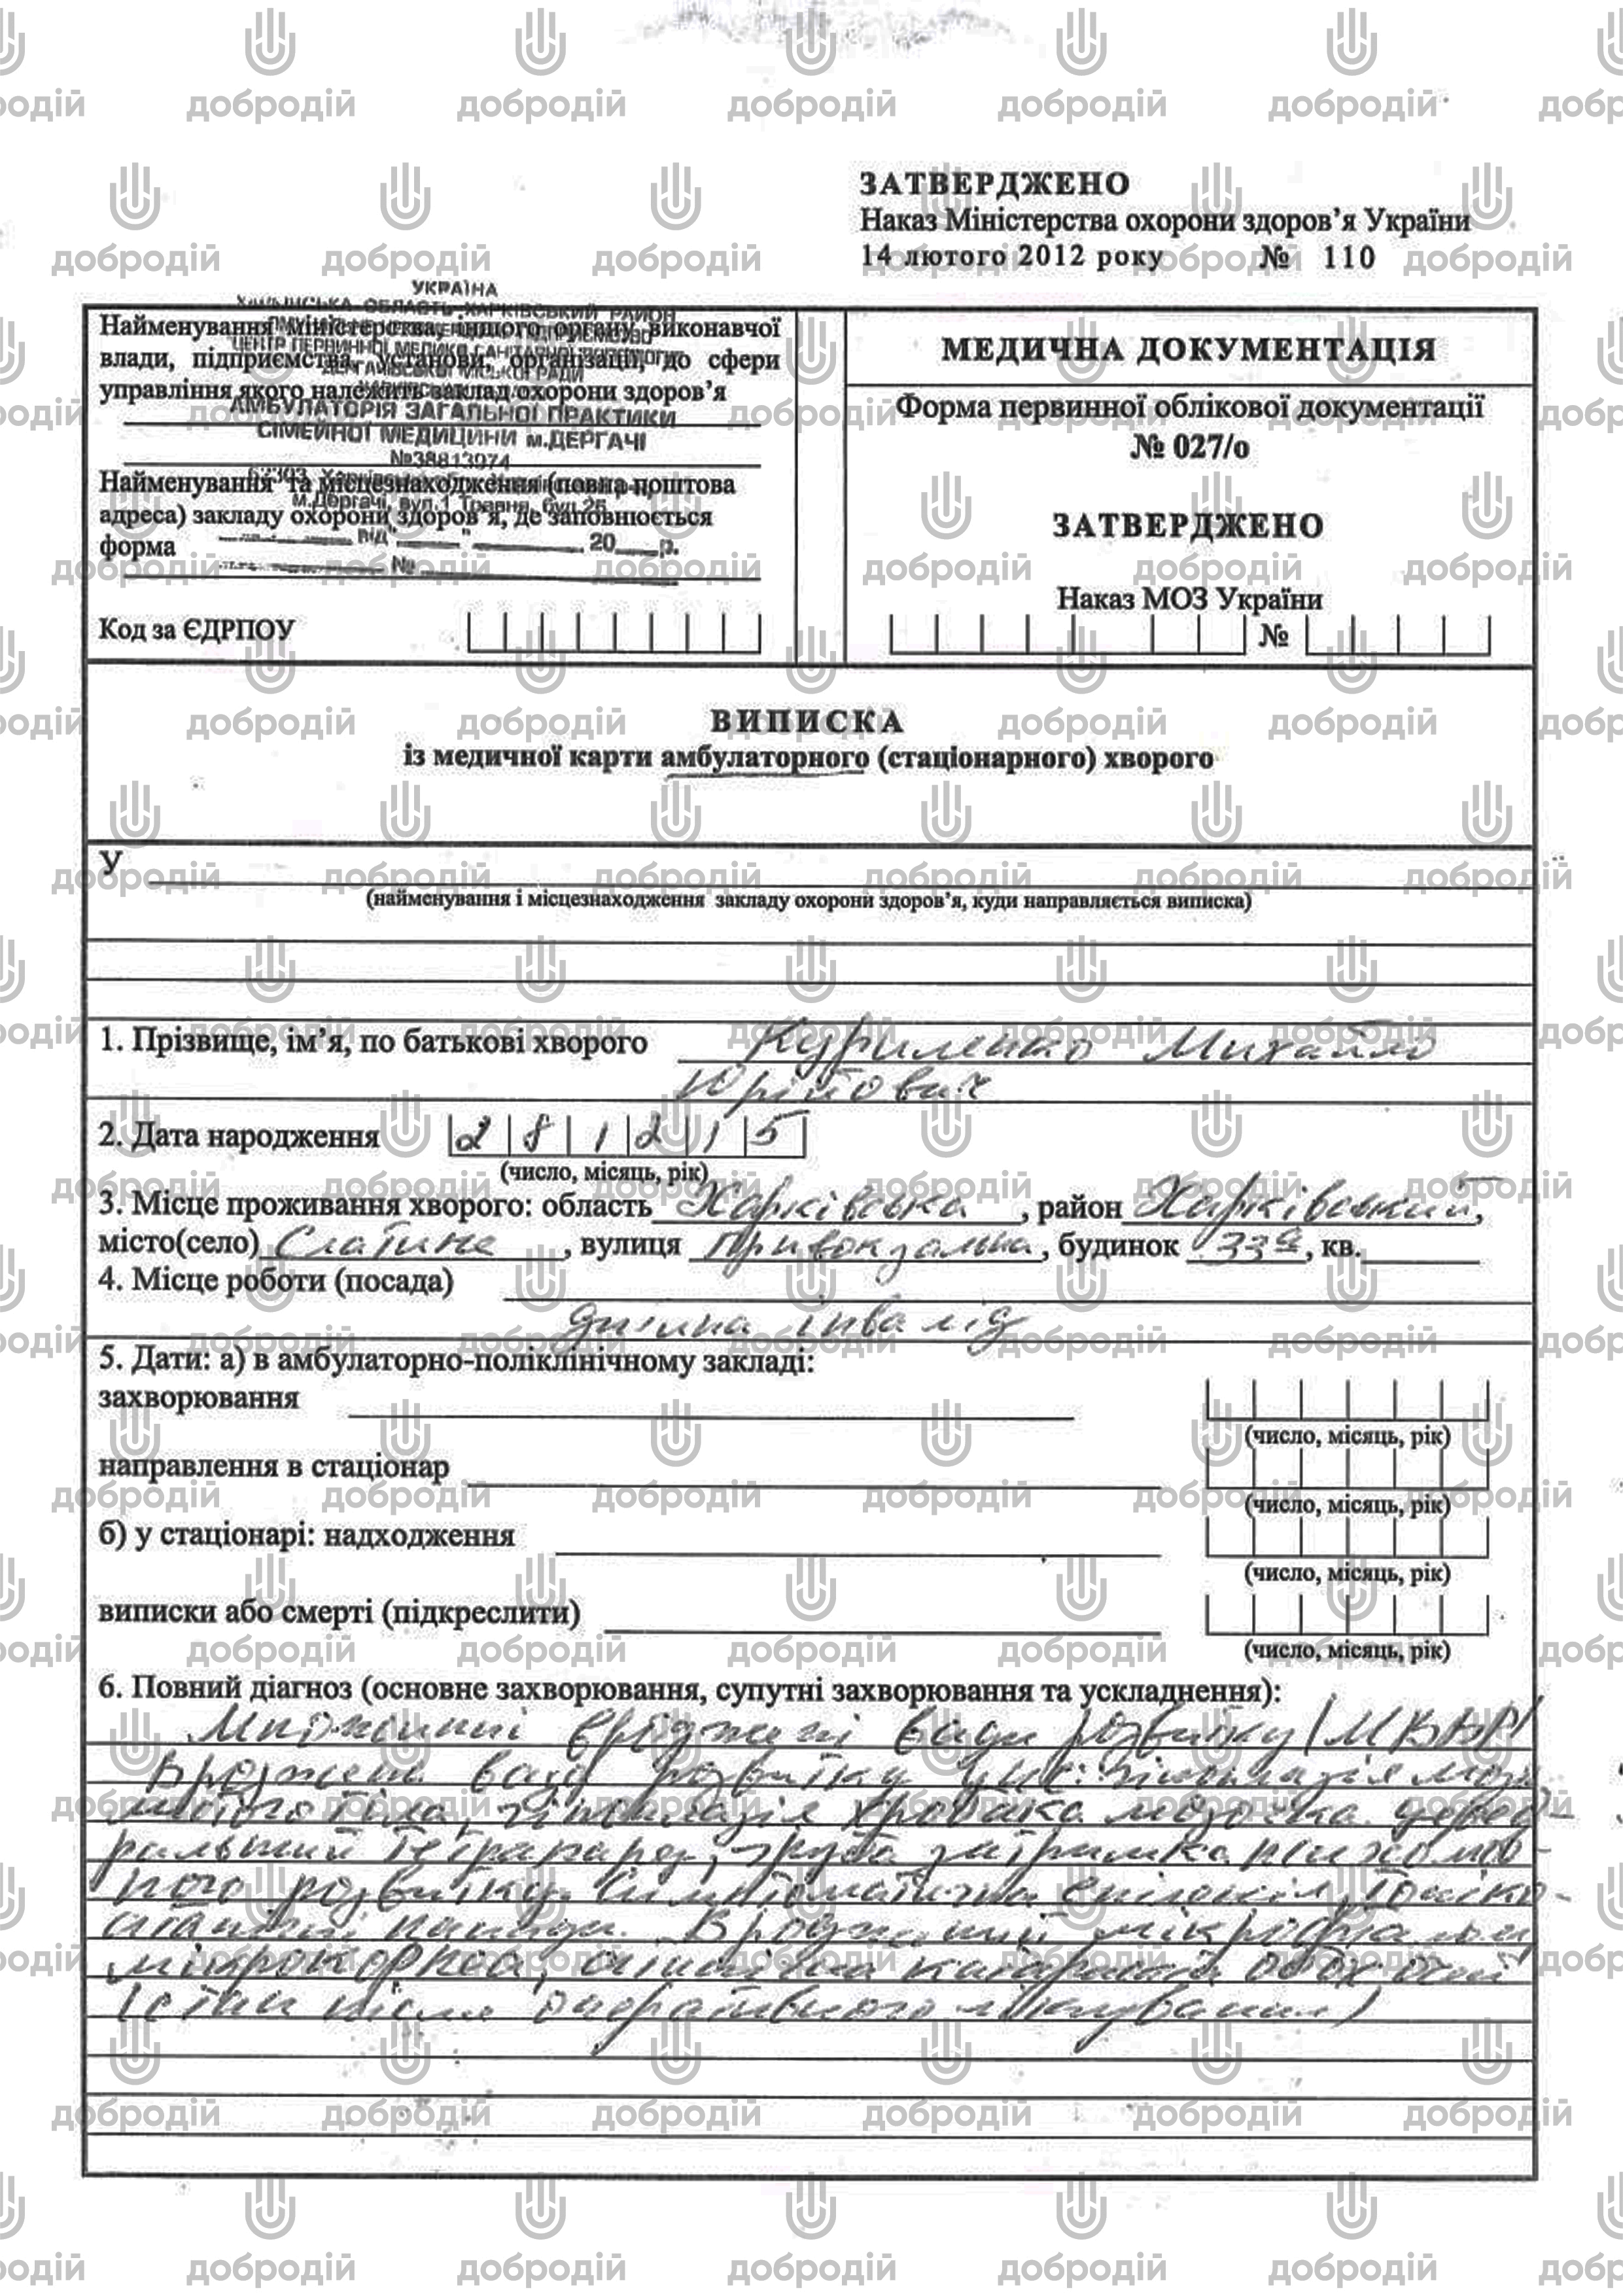 ЗАТВЕРДЖЕНО
Наказ Міністерства охорони здоров’я України
14 лютого 2012 року № 110
УКРАЇНА
ХАРКІВСЬКА ОБЛАСТЬ ХАРКІВСЬКИЙ РАЙОН
ЦЕНТР ПЕРВИННОЇ МЕДИКО САНІТАРНОЇ ДОПОМОГИ
ДЕРГАЧІВСЬКОЇ МІСЬКОЇ РАДИ
АМБУЛАТОРІЯ ЗАГАЛЬНОЇ ПРАКТИКИ
СІМЕЙНОЇ МЕДИЦИНИ м.ДЕРГАЧІ
№38813974
м.Дергачі, вул.1 Травня, буд.25
від "____" ________ 20___р.
№
Найменування Міністерства, іншого органу виконавчої
влади, підприємства, установи, організації, до сфери
управління якого належить заклад охорони здоров’я
Найменування та місцезнаходження (повна поштова
адреса) закладу охорони здоров’я, де заповнюється
форма
Код за ЄДРПОУ
МЕДИЧНА ДОКУМЕНТАЦІЯ
Форма первинної облікової документації
№ 027/о
ЗАТВЕРДЖЕНО
Наказ МОЗ України
№
ВИПИСКА
із медичної карти амбулаторного (стаціонарного) хворого
У
(найменування і місцезнаходження закладу охорони здоров’я, куди направляється виписка)
1. Прізвище, ім’я, по батькові хворого Куриленко Михайло
Юрійович
2. Дата народження 2 8 1 2 1 5
(число, місяць, рік)
3. Місце проживання хворого: область Харківська, район Харківський,
місто(село) Слатине, вулиця Привокзальна, будинок 33а, кв.
4. Місце роботи (посада)
дитина інвалід
5. Дати: а) в амбулаторно-поліклінічному закладі:
захворювання
(число, місяць, рік)
направлення в стаціонар
(число, місяць, рік)
б) у стаціонарі: надходження
(число, місяць, рік)
виписки або смерті (підкреслити)
(число, місяць, рік)
6. Повний діагноз (основне захворювання, супутні захворювання та ускладнення):
Множинні вроджені вади розвитку /МВВР/
Вроджені вади розвитку ЦНС: гіпоплазія мозо-
листого тіла, гіпоплазія хробака мозочка. Церебе-
ральний тетрапарез, груба затримка психомов-
ного розвитку. Симптоматична епілепсія,
напади. Вроджений мікрофтальм,
мікрокорнеа, катаракта обох очей
(стан після оперативного лікування)
добродій